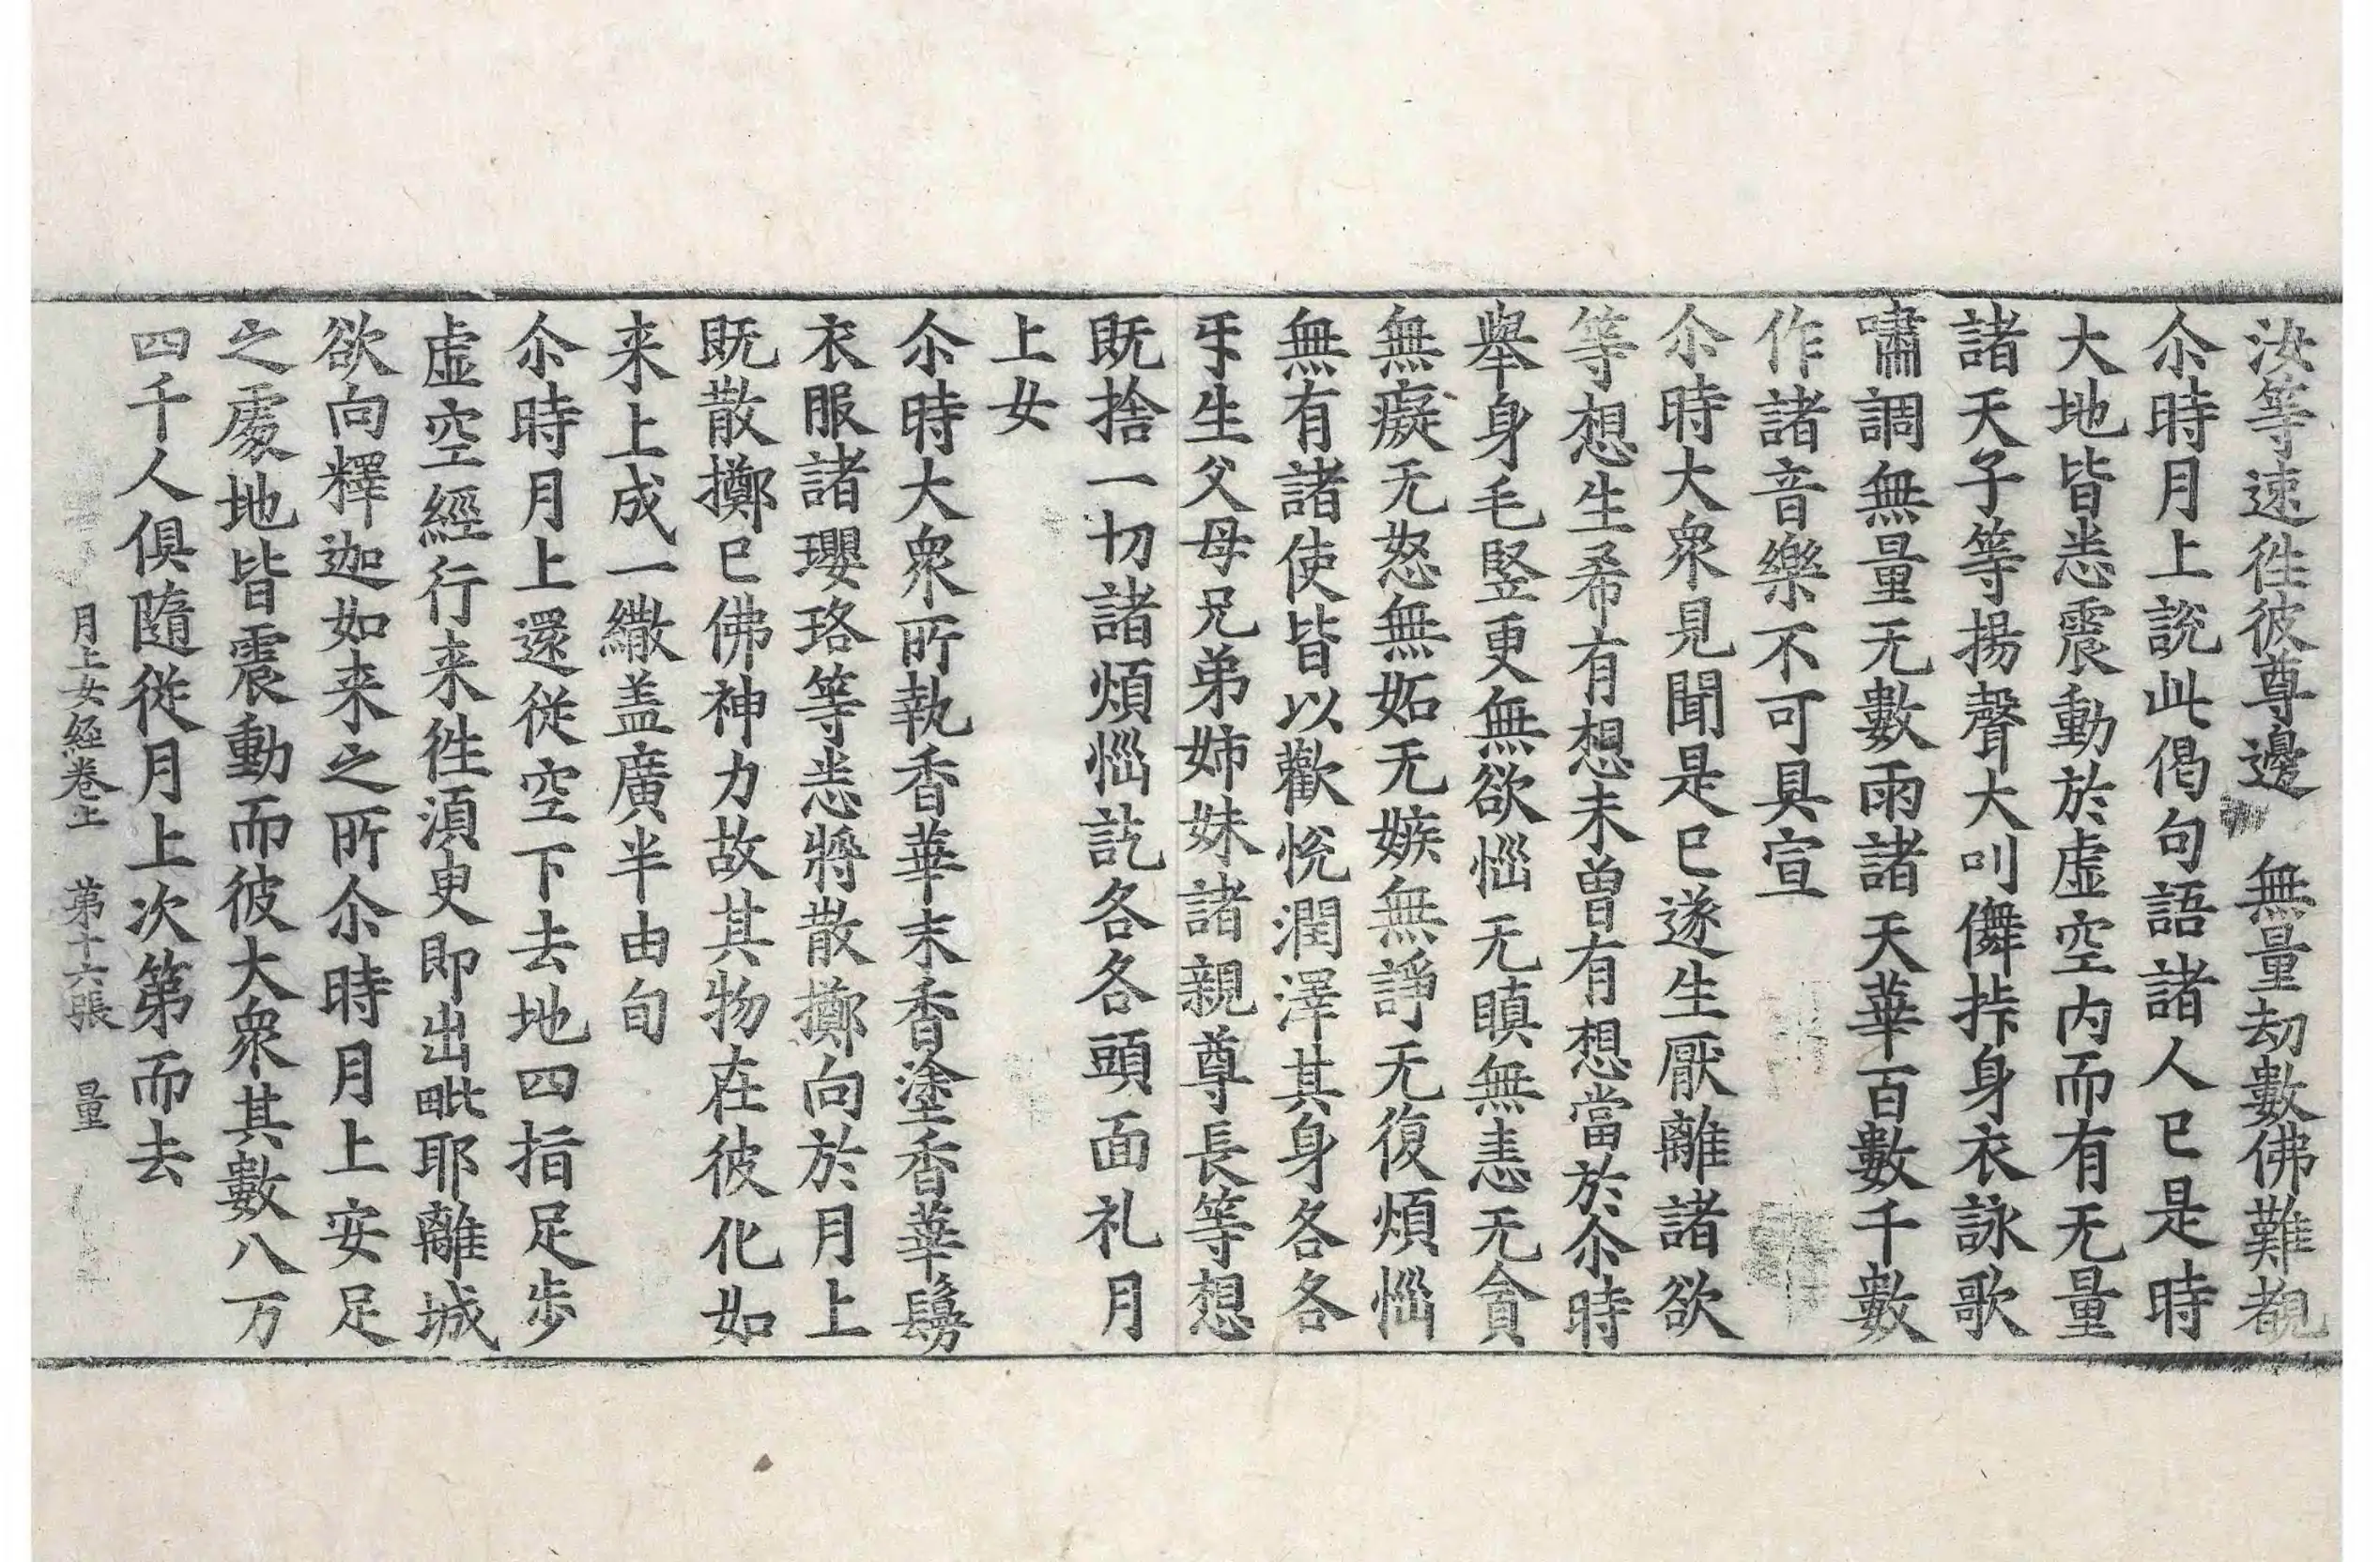 汝等速徃彼尊邊　無量劫數佛難覩
尒時月上說此偈句語諸人已是時
大地皆悉震動於虛空内而有无量
諸天子等揚聲大叫儛挊身衣詠歌
嘯調無量无數雨諸天華百數千數
作諸音樂不可具宣
尒時大衆見聞是已遂生厭離諸欲
等想生希有想未曾有想當於尒時
舉身毛竪更無欲惱无瞋無恚无貪
無癡无怒無妬无嫉無諍无復煩惱
無有諸使皆以歡悅潤澤其身各各
乎生父母兄弟姉妹諸親尊長等想
既捨一切諸煩惱訖各各頭面礼月
上女
尒時大衆所執香華末香塗香華鬘
衣服諸瓔珞等悉將散擲向於月上
既散擲已佛神力故其物在彼化如
来上成一繖盖廣半由旬
尒時月上還從空下去地四指足步
虛空經行来徃須臾即出毗耶離城
欲向釋迦如来之所尒時月上安足
之處地皆震動而彼大衆其數八万
四千人俱隨從月上次第而去
月上女經卷上　第十六張　量